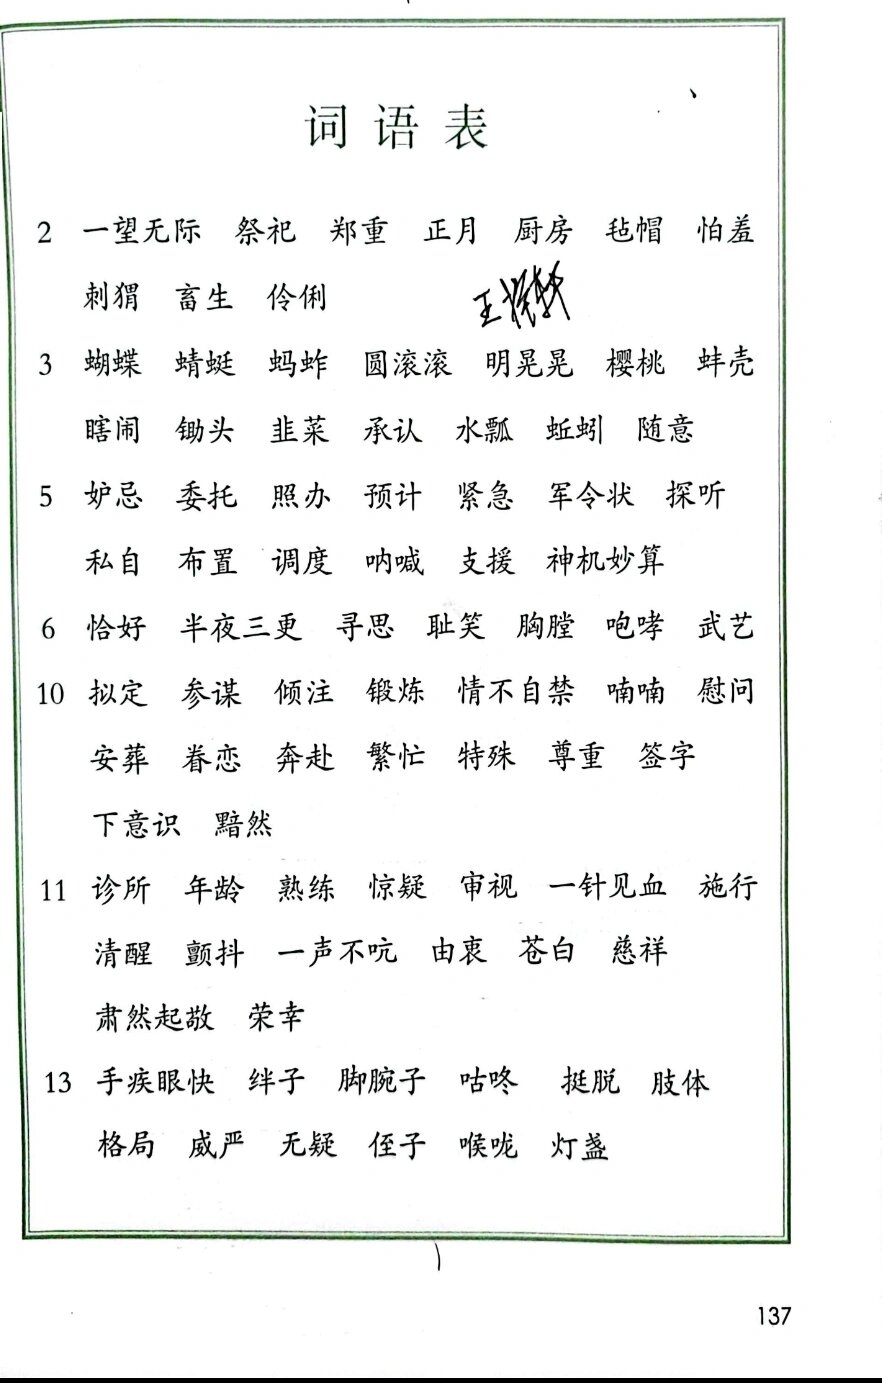 词语表
2 一望无际 祭祀 郑重 正月 厨房 毡帽 怕羞
刺猬 畜生 伶俐
3 蝴蝶 蜻蜓 蚂蚱 圆滚滚 明晃晃 樱桃 蚌壳
瞎闹 锄头 韭菜 承认 水瓢 蚯蚓 随意
5 妒忌 委托 照办 预计 紧急 军令状 探听
私自 布置 调度 呐喊 支援 神机妙算
6 恰好 半夜三更 寻思 耻笑 胸膛 咆哮 武艺
10 拟定 参谋 倾注 锻炼 情不自禁 喃喃 慰问
安葬 眷恋 奔赴 繁忙 特殊 尊重 签字
下意识 黯然
11 诊所 年龄 熟练 惊疑 审视 一针见血 施行
清醒 颤抖 一声不吭 由衷 苍白 慈祥
肃然起敬 荣幸
13 手疾眼快 绊子 脚腕子 咕咚 挺脱 肢体
格局 威严 无疑 侄子 喉咙 灯盏
137